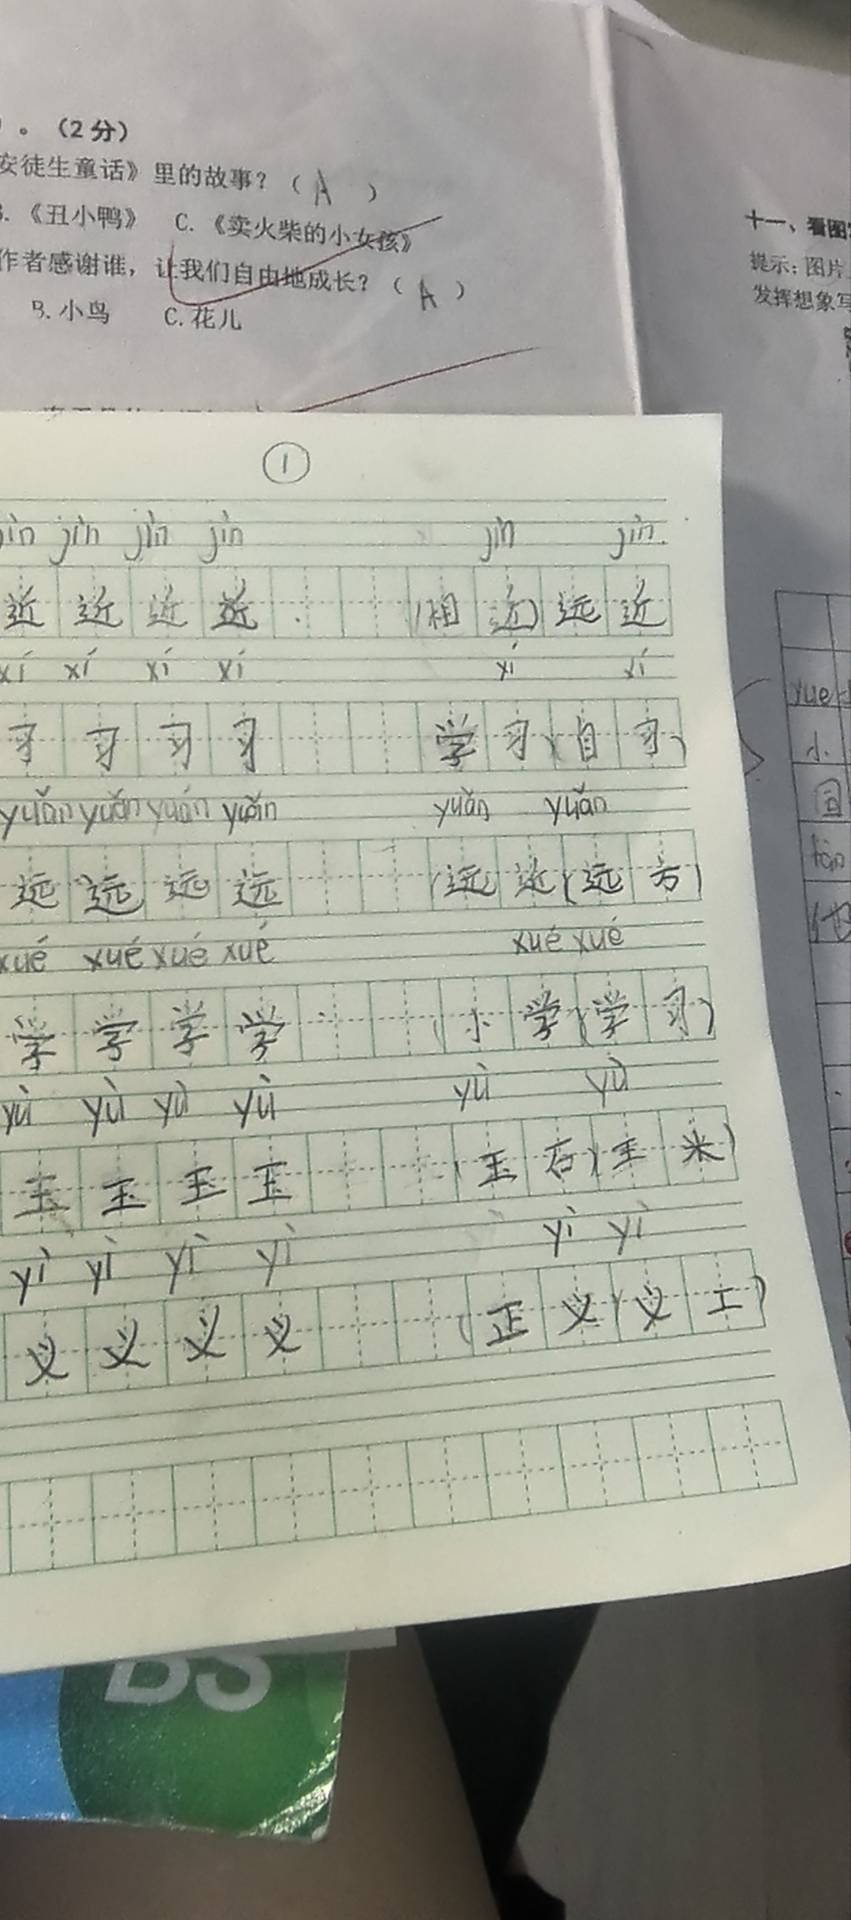 。（2分）
安徒生童话》里的故事？（ A ）
B.《丑小鸭》 C.《卖火柴的小女孩》
作者感谢谁，让我们自由地成长？（ A ）
B.小鸟 C.花儿
十一、看图
提示：图片
发挥想象写
①
jìn jìn jìn jìn jìn jìn
近 近 近 近 （相 近）远 近
xí xí xí xí xí xí
习 习 习 习 学 习（自 习）
yuǎn yuǎn yuǎn yuǎn yuǎn yuǎn
远 远 远 远 （远 近（远 方）
xué xué xué xué xué xué
学 学 学 学 （小 学（学 习）
yù yù yù yù yù yù
玉 玉 玉 玉 （玉 石）（玉 米）
yì yì yì yì yì yì
义 义 义 义 （正 义）（义 工）
yue
小
BS